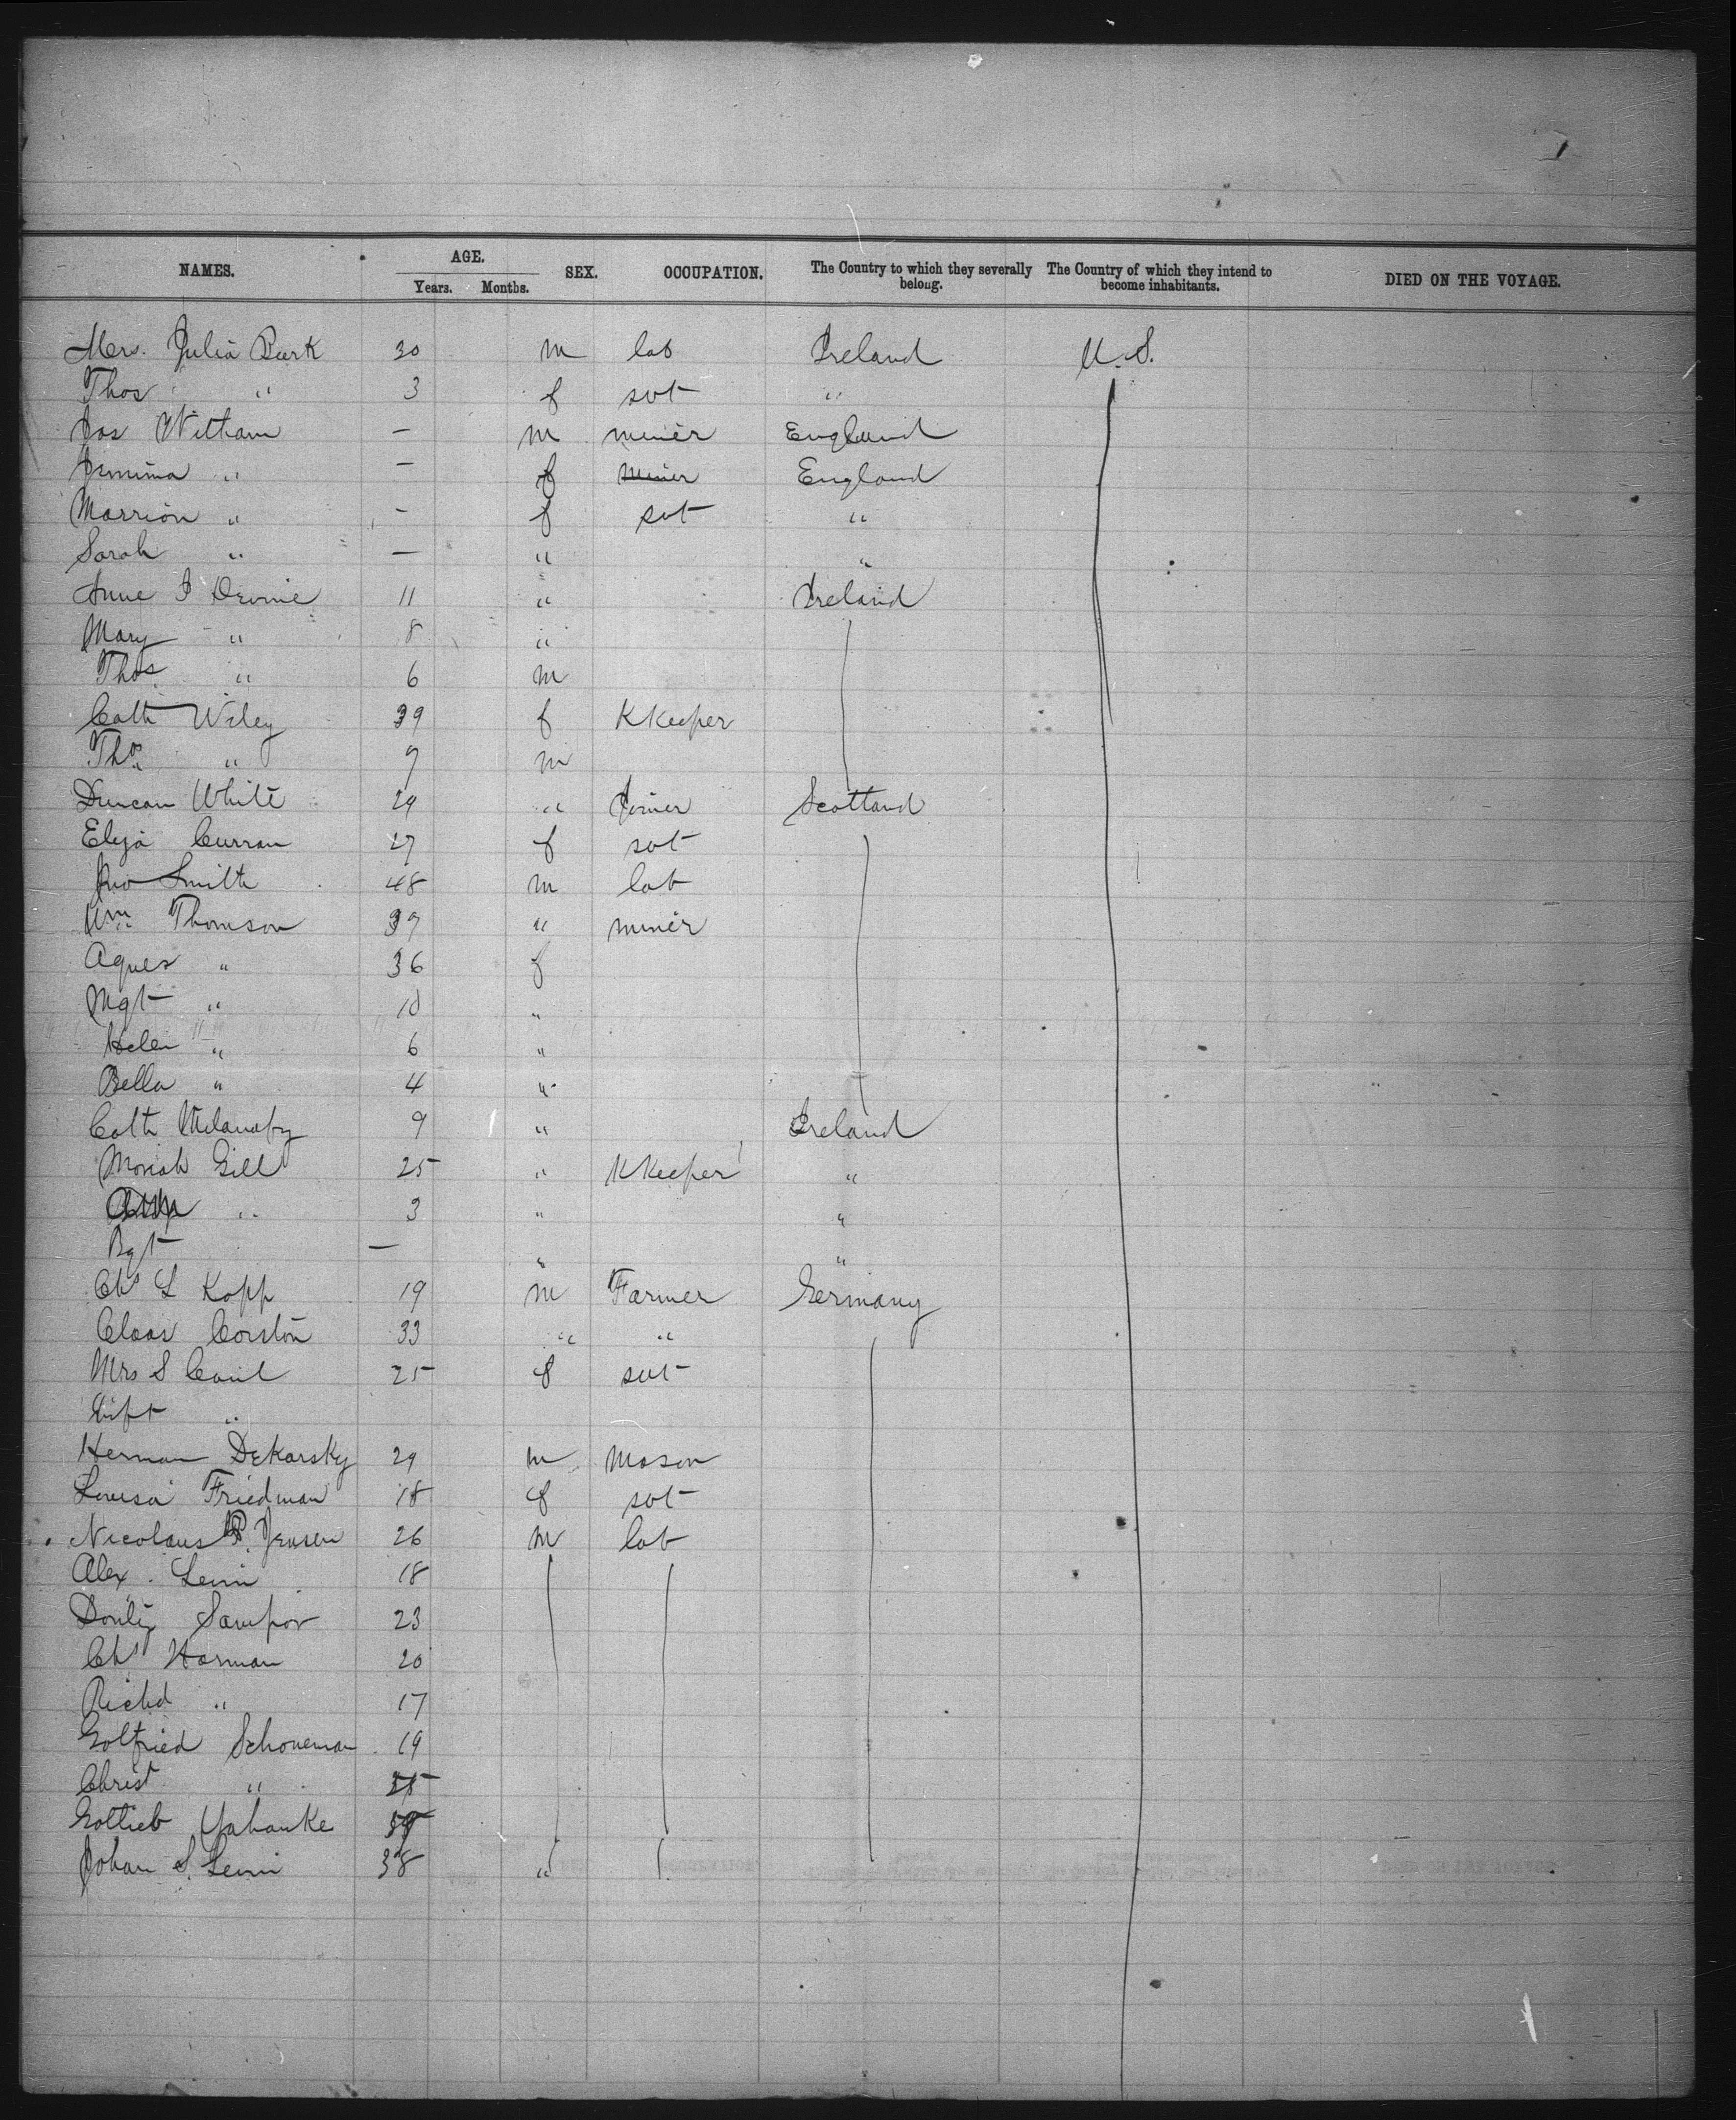 NAMES. AGE. SEX. OCCUPATION. The Country to which they severally belong. The Country of which they intend to become inhabitants. DIED ON THE VOYAGE.
Years. Months.
Mrs. Julia Burk 30 m lab Ireland U.S.
Thos " 3 f svt "
Jas Witham — m miner England
Jemima " — f miner England
Marrion " — f svt "
Sarah " — " "
Anne J Devine 11 " Ireland
Mary " 8 "
Thos " 6 m
Cath Wiley 39 f KKeeper
Thos " 9 m
Duncan White 29 " Joiner Scotland
Eliza Curran 27 f svt
Jno Smith 48 m lab
Wm Thomson 39 " miner
Agnes " 36 f
Mgt " 10 "
Helen " 6 "
Bella " 4 "
Cath 9 " Ireland
Moriah Gill 25 " KKeeper "
" 3 " "
Bgt — " "
Chs L Kopp 19 m Farmer Germany
Claas Corston 33 " "
Mrs S 25 f svt
Inft "
Herman Dekarsky 29 m Mason
Louisa Friedman 18 f svt
Nicolaus P. Jensen 26 m lab
Alex 18
23
Chs Harman 20
Richd " 17
Gotfried Schoneman 19
Christ "
Gottlieb Yahanke
Johan S. 38 "